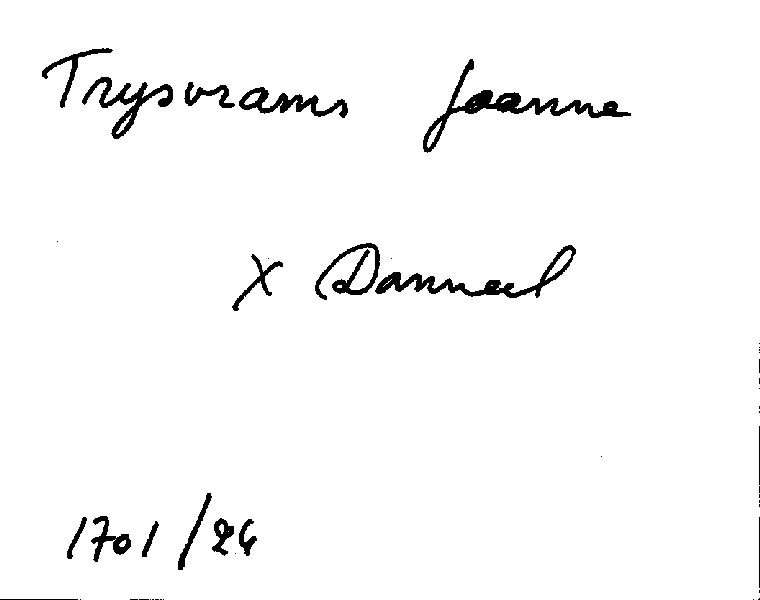 Trysorams Joanne
X Danneel
1701/24